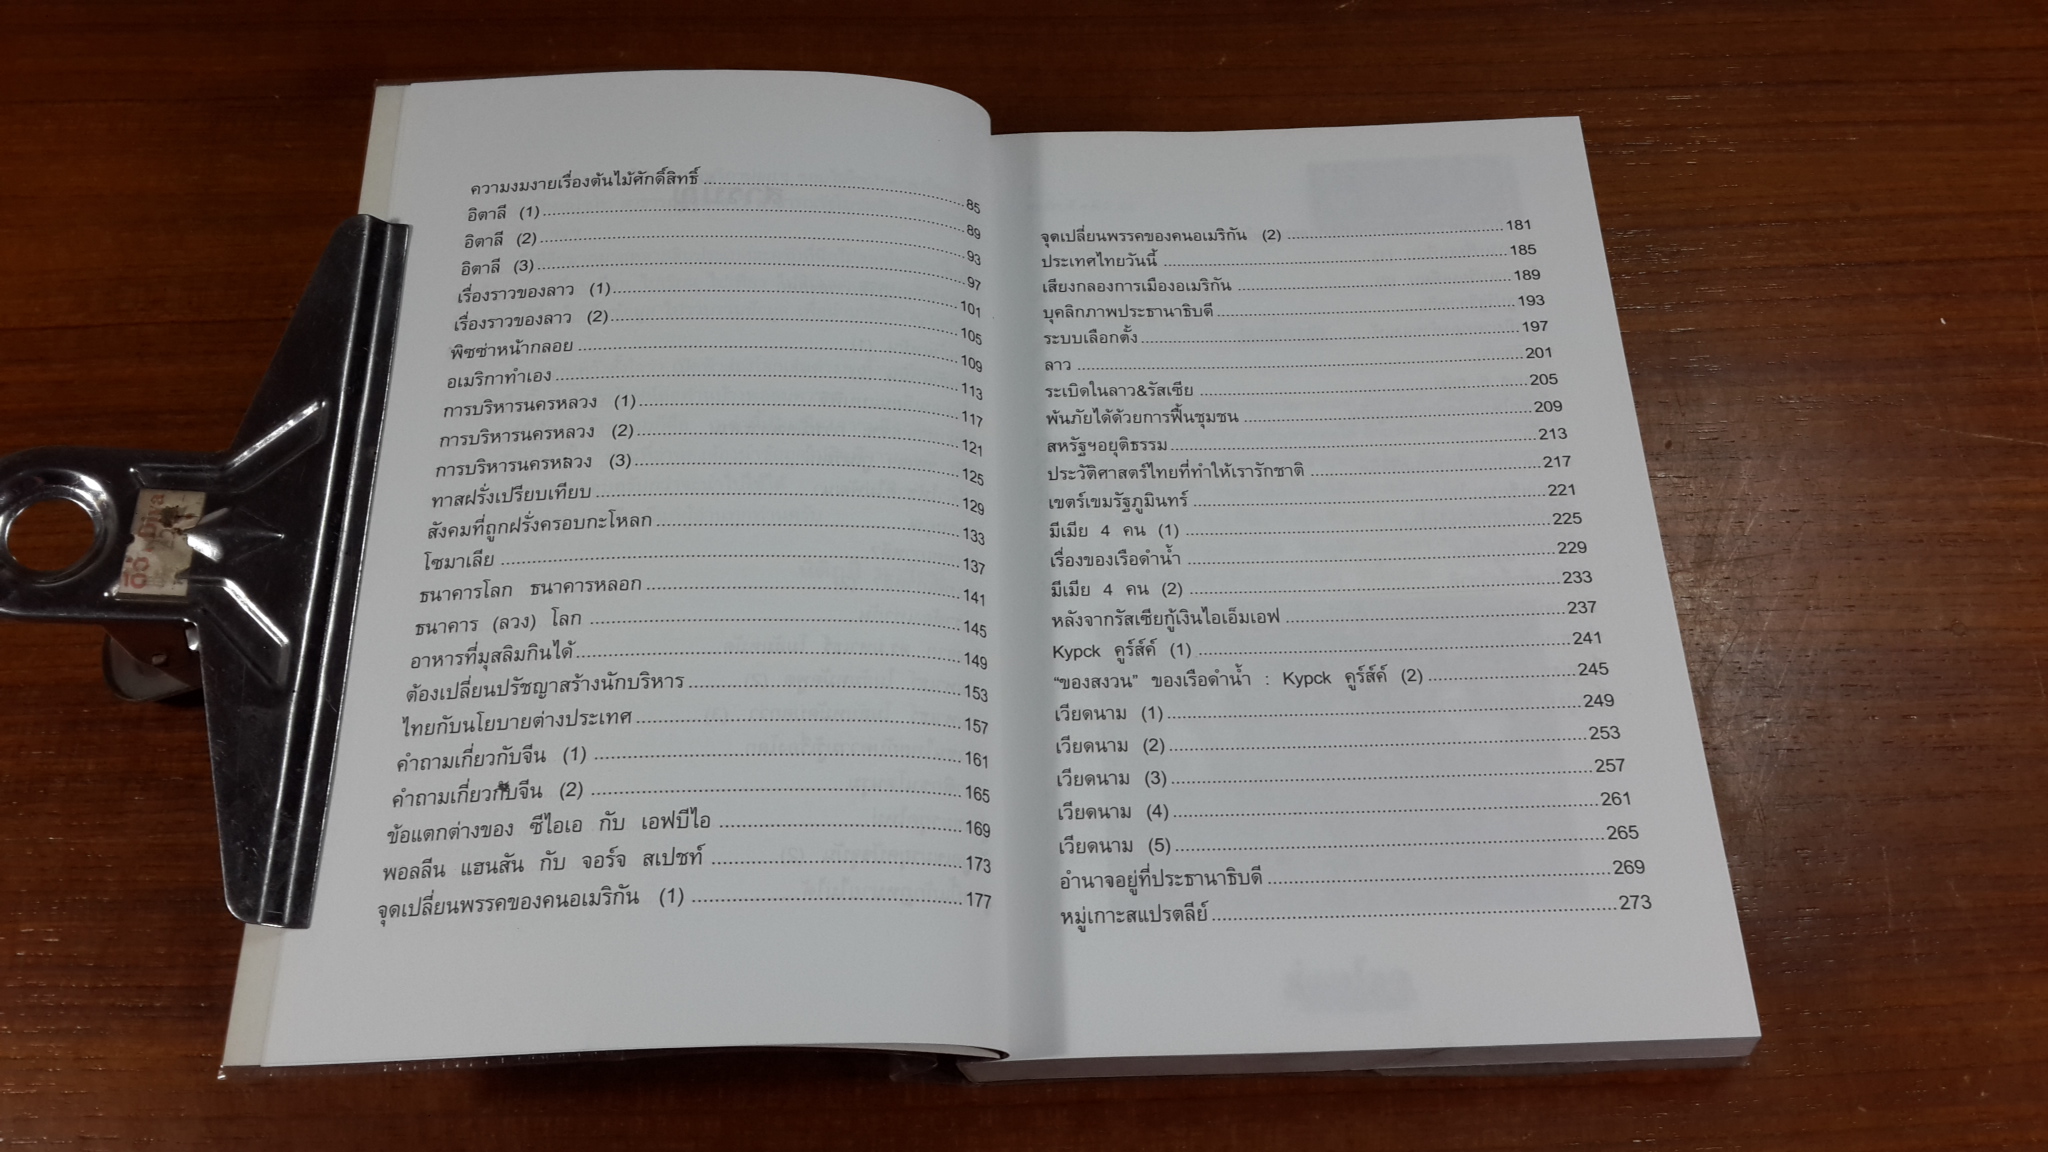 ความงมงายเรื่องต้นไม้ศักดิ์สิทธิ์ ........ 85
อิตาลี (1) ........ 89
อิตาลี (2) ........ 93
อิตาลี (3) ........ 97
เรื่องราวของลาว (1) ........ 101
เรื่องราวของลาว (2) ........ 105
พิซซ่าหน้ากลอย ........ 109
อเมริกาทำเอง ........ 113
การบริหารนครหลวง (1) ........ 117
การบริหารนครหลวง (2) ........ 121
การบริหารนครหลวง (3) ........ 125
ทาสฝรั่งเปรียบเทียบ ........ 129
สังคมที่ถูกฝรั่งครอบกะโหลก ........ 133
โซมาเลีย ........ 137
ธนาคารโลก ธนาคารหลอก ........ 141
ธนาคาร (ลวง) โลก ........ 145
อาหารที่มุสลิมกินได้ ........ 149
ต้องเปลี่ยนปรัชญาสร้างนักบริหาร ........ 153
ไทยกับนโยบายต่างประเทศ ........ 157
คำถามเกี่ยวกับจีน (1) ........ 161
คำถามเกี่ยวกับจีน (2) ........ 165
ข้อแตกต่างของ ซีไอเอ กับ เอฟบีไอ ........ 169
พอลลีน แฮนสัน กับ จอร์จ สเปซท์ ........ 173
จุดเปลี่ยนพรรคของคนอเมริกัน (1) ........ 177
จุดเปลี่ยนพรรคของคนอเมริกัน (2) ........ 181
ประเทศไทยวันนี้ ........ 185
เสียงกลองการเมืองอเมริกัน ........ 189
บุคลิกภาพประธานาธิบดี ........ 193
ระบบเลือกตั้ง ........ 197
ลาว ........ 201
ระเบิดในลาว&รัสเซีย ........ 205
พ้นภัยได้ด้วยการฟื้นชุมชน ........ 209
สหรัฐฯอยุติธรรม ........ 213
ประวัติศาสตร์ไทยที่ทำให้เรารักชาติ ........ 217
เขตร์เขมรัฐภูมินทร์ ........ 221
มีเมีย 4 คน (1) ........ 225
เรื่องของเรือดำน้ำ ........ 229
มีเมีย 4 คน (2) ........ 233
หลังจากรัสเซียกู้เงินไอเอ็มเอฟ ........ 237
Kypck คูร์ส์ค์ (1) ........ 241
“ของสงวน” ของเรือดำน้ำ : Kypck คูร์ส์ค์ (2) ........ 245
เวียดนาม (1) ........ 249
เวียดนาม (2) ........ 253
เวียดนาม (3) ........ 257
เวียดนาม (4) ........ 261
เวียดนาม (5) ........ 265
อำนาจอยู่ที่ประธานาธิบดี ........ 269
หมู่เกาะสแปรตลีย์ ........ 273